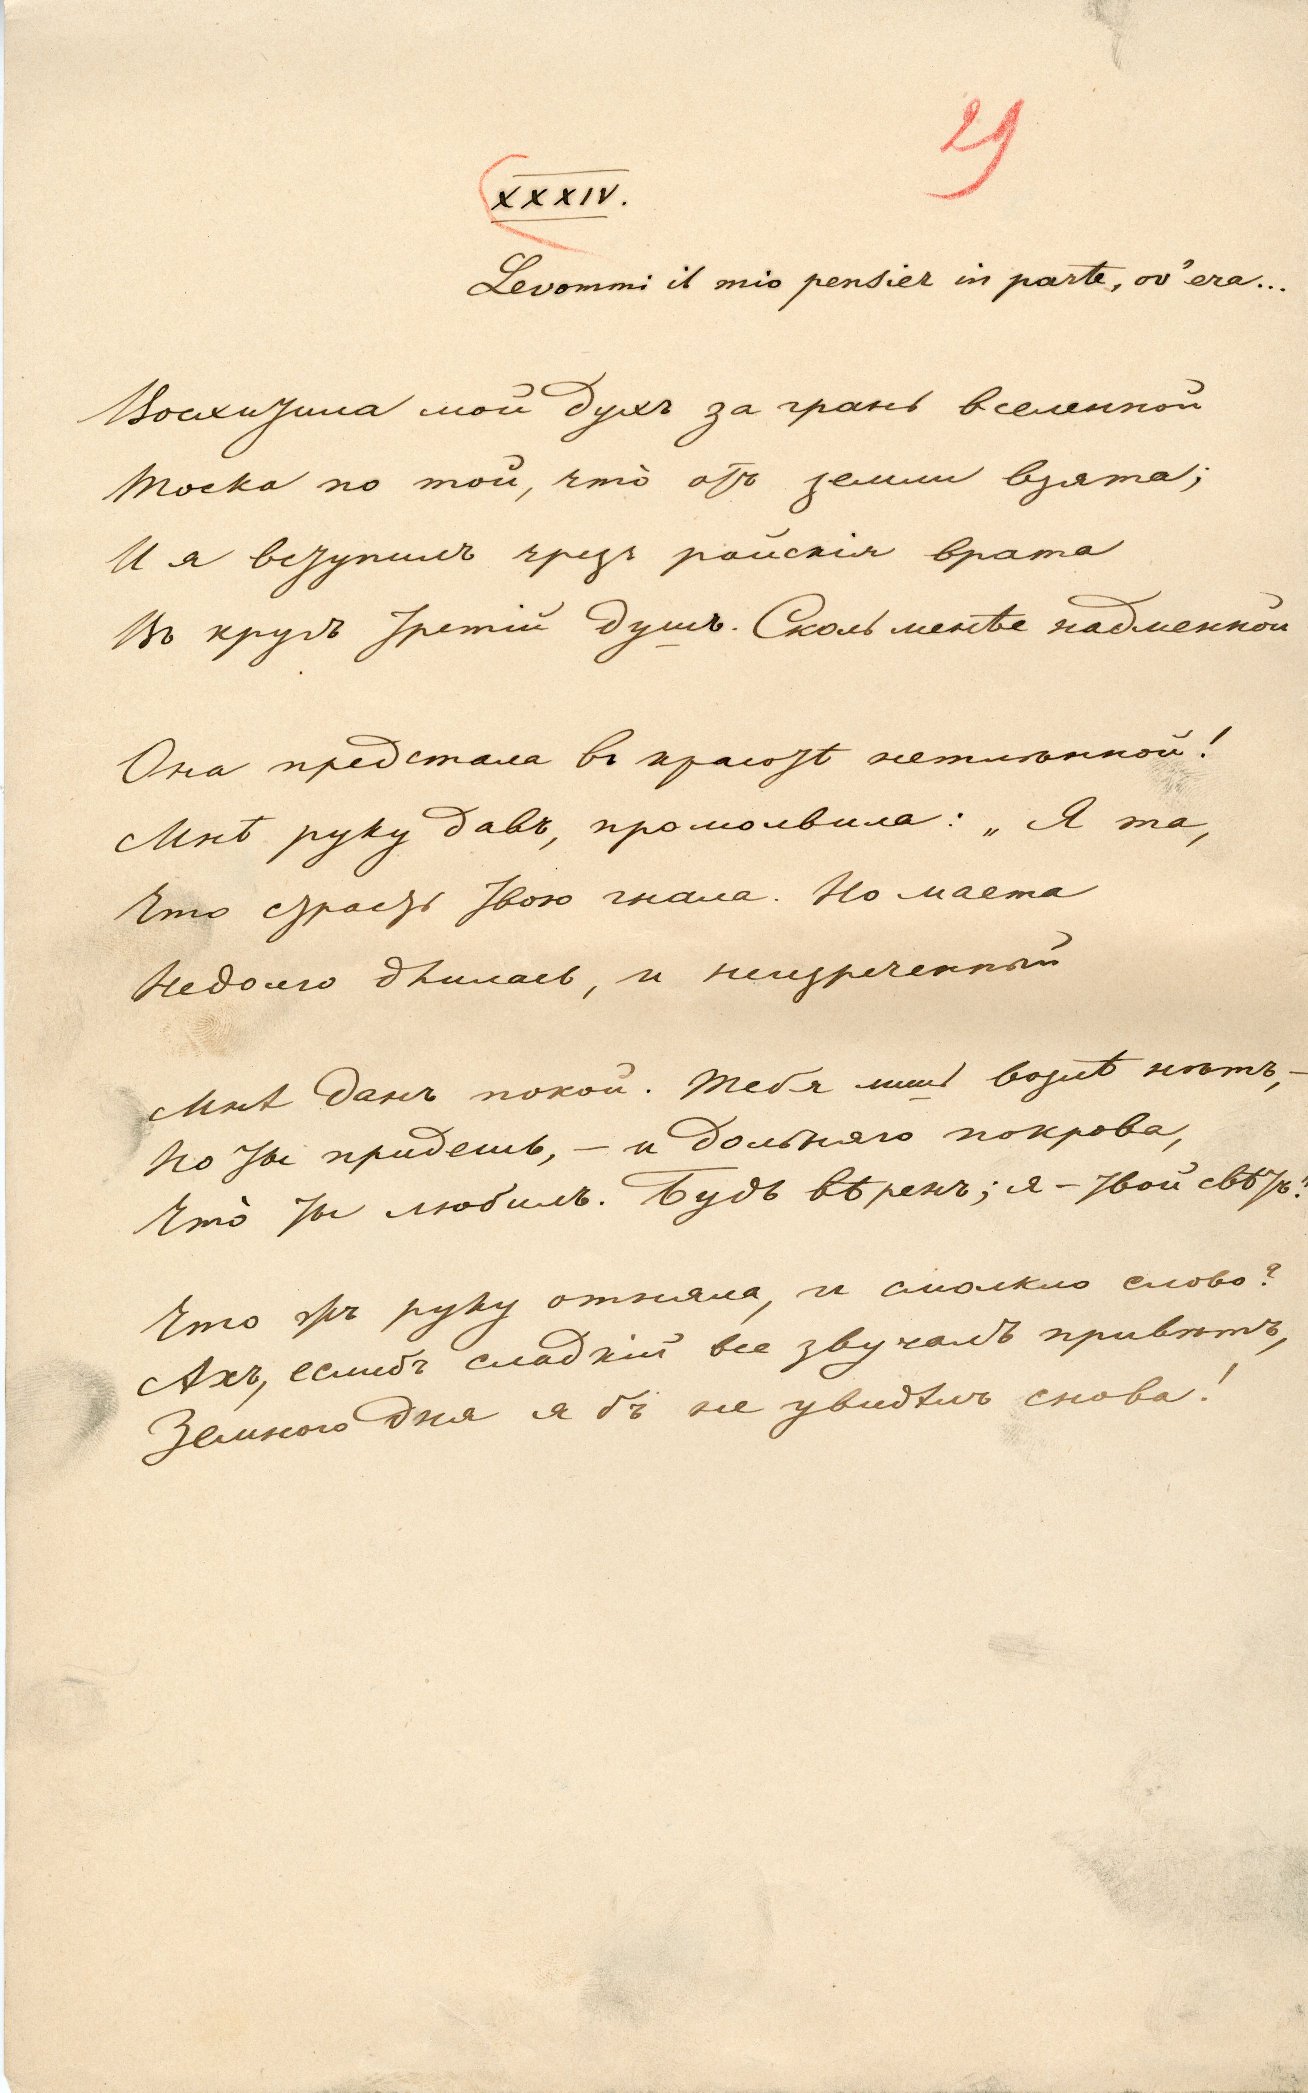 29
XXXIV.
Levommi il mio pensier in parte, ov'era...
Восхитила мой духъ за грань вселенной
Тоска по той, что̀ отъ земли взята;
И я вступилъ чрезъ райскія врата
Въ кругъ третій душъ. Сколь менѣе надменной
Она предстала въ красотѣ нетлѣнной!
Мнѣ руку давъ, промолвила: „Я та,
Что страсть твою гнала. Но маета
Недолго длилась, и неизреченный
Мнѣ данъ покой. Тебя лишь возлѣ нѣтъ,—
Но ты придешь, — и дольняго покрова,
Что̀ ты любилъ. Будь вѣренъ; я — твой свѣтъ."
Что жъ руку отняла, и смолкло слово?
Ахъ, еслибъ сладкій все звучалъ привѣтъ,
Земного дня я бъ не увидѣлъ снова!